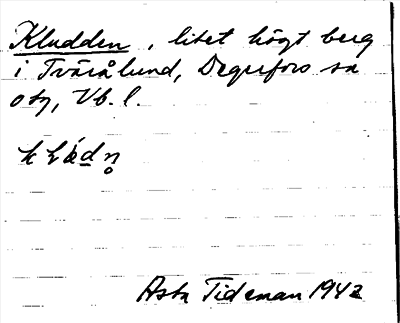 Kludden, litet högt berg
i Tvärålund, Degerfors sn
osv, Vb. l.
Asta Tideman 1942